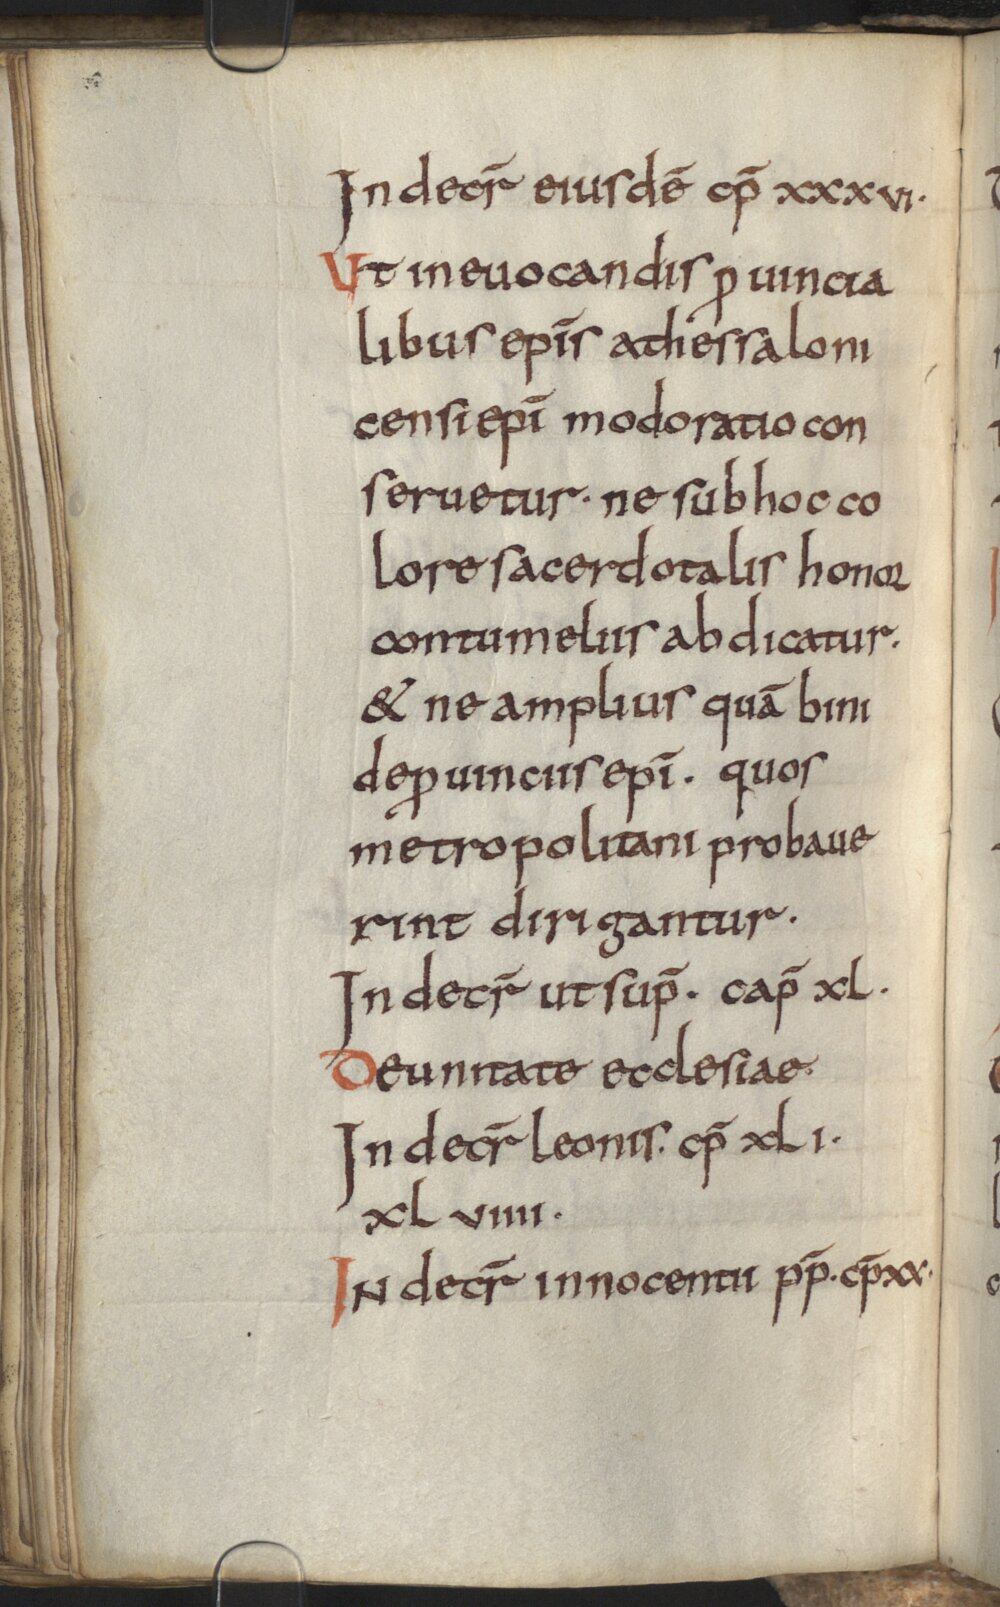 In decr̄ eiusdē cp̄ xxxvi·
Ut in euocandis ꝓuincia
libus epīs athessaloni
censi epī modoratio con
seruetur· ne sub hoc co
lore sacerdotalis honor
contumeliis abdicatur·
& ne amplius quā bini
de ꝓuinciis epī· quos
metropolitani probaue
rint dirigantur·
In decr̄ ut sup̄· cap̄ xl·
De unitate ecclesiae·
In decr̄ leonis· cp̄ xl i·
xl viiii·
IN decr̄ innocentii pp̄· cp̄ xx·